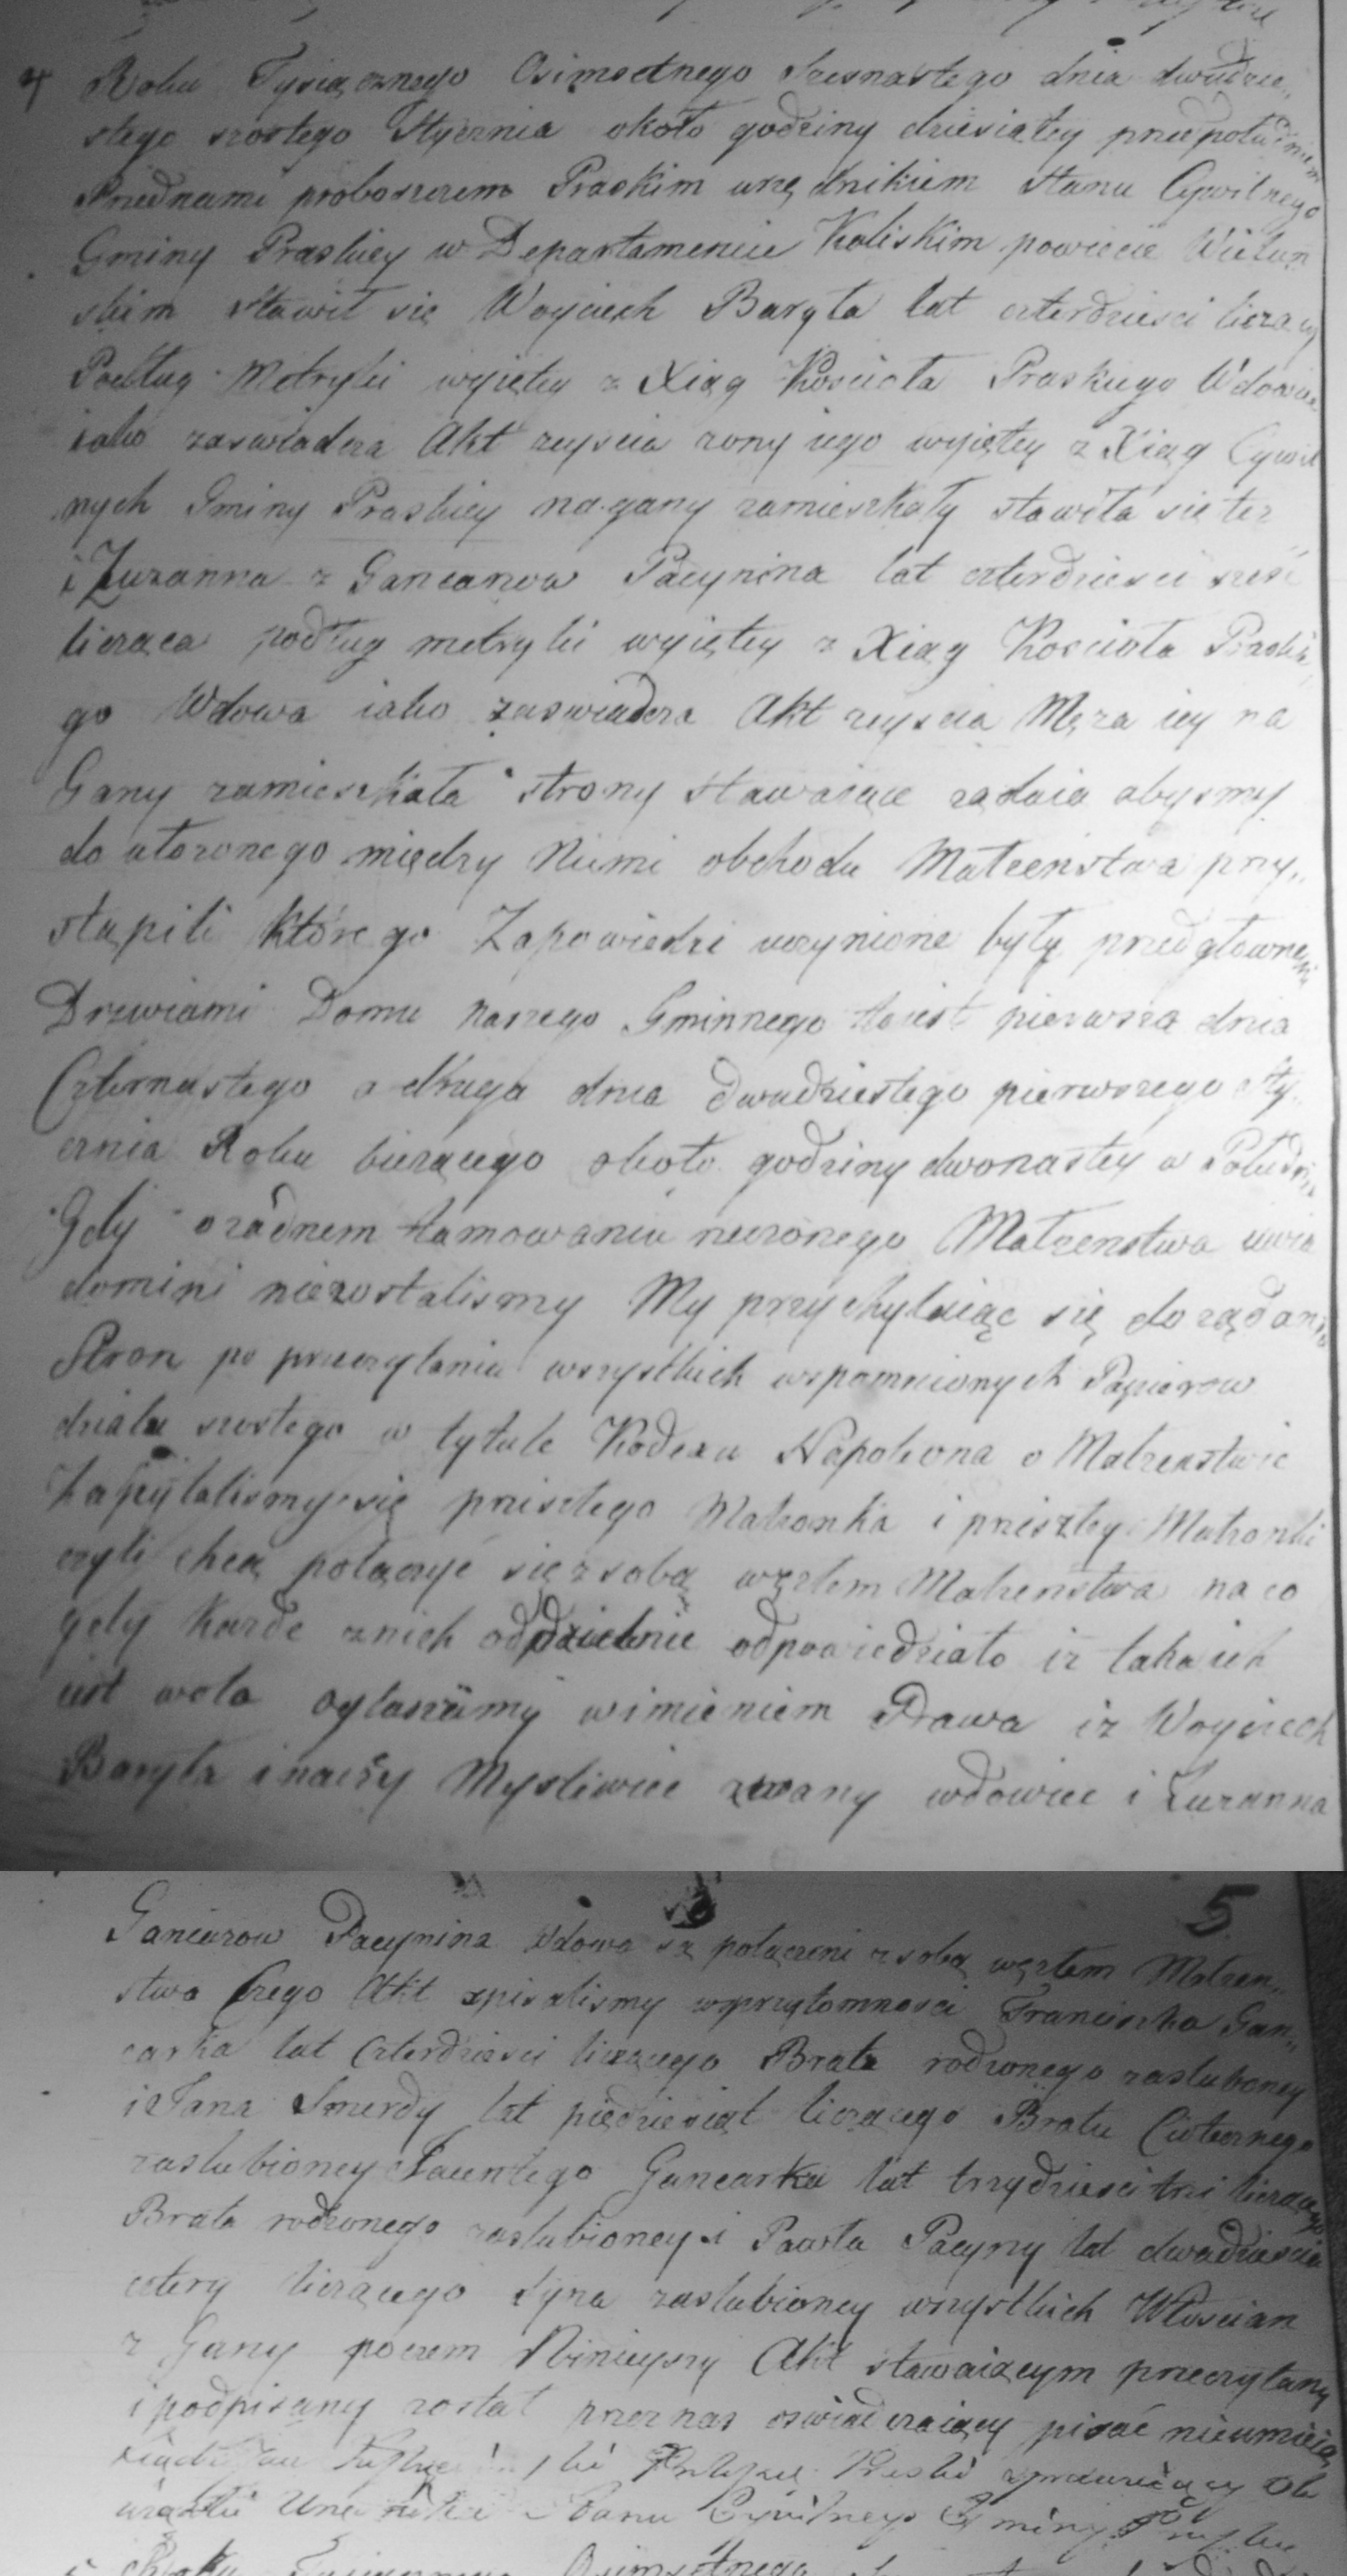 4 Roku Tysiącznego Osimsetnego Szesnastego dnia dwudzie„
stego szostego Stycznia około godziny dziesiątey przedpołudniem
Przednami proboszczem Praskim urzędnikiem Stanu Cywilnego
Gminy Praskiey w Departamencie Kaliskim powiecie Wieluń
skim stawił się Woyciech Baryła lat czterdziesci liczący
Podług Metryki wyiętey z Xiąg Kościoła Praskiego Wdowiec
iako zaswiadcza Akt zeyscia zony iego wyiętey z Xiąg Cywil
nych Gminy Praskiey na gany zamieszkały stawiła się tez
i Zuzanna z Gancarow Pacynina lat czterdziesci szesć
licząca podług metryki wyiętey z Xiąg Kosciola Praskie„
go Wdowa iako zaswiadcza Akt zeyscia Męza iey na
Gany zamieszkała strony stawaiące ządaią abysmy
do ułozonego między Niemi obchodu Małzenstwa przy„
stąpili którego Zapowiedzi uczynione były przed głównemi
Drzwiami Domu naszego Gminnego to iest pierwsza dnia
Czternastego a druga dnia dwudziestego pierwszego Sty„
cznia Roku biezącego około godziny dwonastey w Południe
Gdy o zadnem tamowaniu rzeczonego Małzenstwa uwia
domini niezostalismy My przychylaiąc się do ządania
Stron po przeczytaniu wszystkich wspomnionych Papierow
działu szostego w tytule Kodexu Napoleona o Małzenstwie
Zapytalismy się przyszłego Małzonka i przyszłey Małzonki
czyli chcą połączyć się z sobą węzłem Małzenstwa na co
gdy kazde z nich oddzielnie odpowiedziało iz taka ich
iest wola ogłaszamy w imieniem Prawa iz Woyciech
Baryła inaczy Mysliwiec zwany wdowiec i Zuzanna
5
Gancarow Pacynina Wdowa są połączeni z sobą węzłem Małzen„
stwa Czego Akt spisalismy w przytomnosci Franciszka Gan„
carka lat Czterdziesci liczącego Brata rodzonego zaslubioney
i Jana Smerdy lat pięcdziesiąt liczącego Brata Ciotecznego
zaslubioney Jacentego Gancarka lat trzydziesci trzi liczącego
Brata rodzonego zaslubioney i Pawła Pacyny lat dwadziescia
cztery liczącego Syna zaslubioney wszystkich Włoscian
z Gany poczem Ninieyszy Akt stawaiącym przeczytany
i podpisany został przez nas oswiadczaiący pisać nieumieią
Stanu Cywilnego Gminy
Roku Tysiącznego Osimsetnego